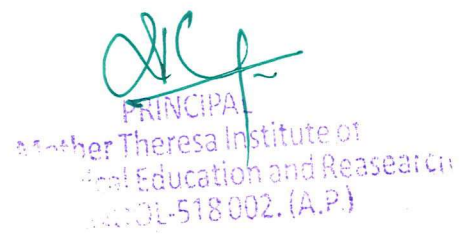 PRINCIPAL
Mother Theresa Institute of
Education and Reasearch
-518 002. (A.P.)